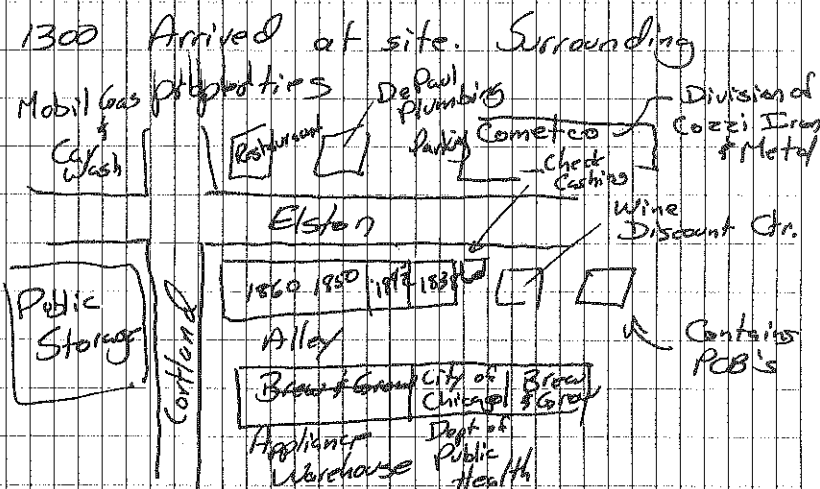 1300 Arrived at site. Surrounding
properties
Mobil Gas
&
Car
Wash
Restaurant
DePaul
Plumbing
Parking
Cometco
Division of
Cozzi Iron
& Metal
Check
Cashing
Elston
Wine
Discount Ctr.
Public
Storage
Cortland
1860 1850 1842 1838
Alley
Contains
PCB's
Brew & Grow
City of
Chicago
Brew
& Grow
Appliance
Warehouse
Dept of
Public
Health